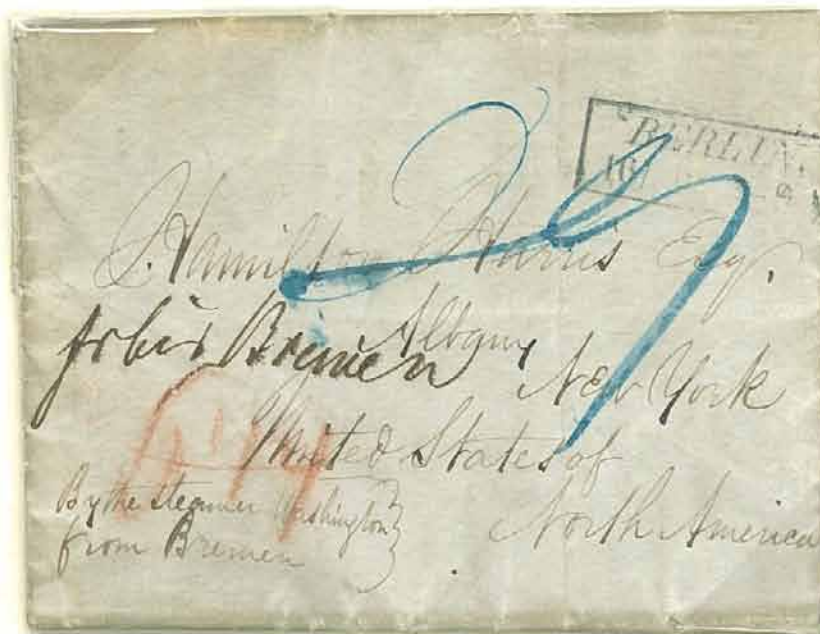 BERLIN.
16
J. Hamilton Harris Esq.
Albany
frbis Bremen
New York
United States of
North America
By the Steamer Washington
from Bremen